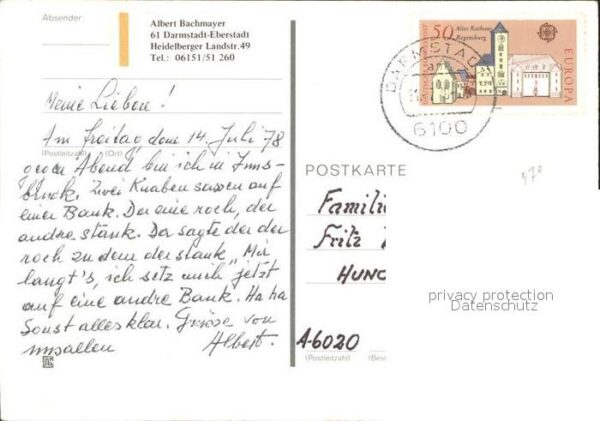 Absender
Albert Bachmayer
61 Darmstadt-Eberstadt
Heidelberger Landstr. 49
Tel.: 06151/51 260
Meine Lieben!
Am Freitag, dem 14. Juli 78
(Postleitzahl) (Ort)
gegen Abend bin ich in Inns-
bruck. Zwei Knaben sassen auf
einer Bank. Der eine roch, der
andre stank. Da sagte der der
roch zu dem der stank „Mir
langt's, ich setz mich jetzt
auf eine andre Bank. Ha ha
Sonst alles klar. Grüsse von
uns allen Albert.
50
Altes Rathaus
Regensburg
DEUTSCHE BUNDESPOST
EUROPA
CEPT
DARMSTADT
6100
POSTKARTE
Famili
Fritz
HUNG
A-6020
(Postleitzahl) (Bes
privacy protection
Datenschutz